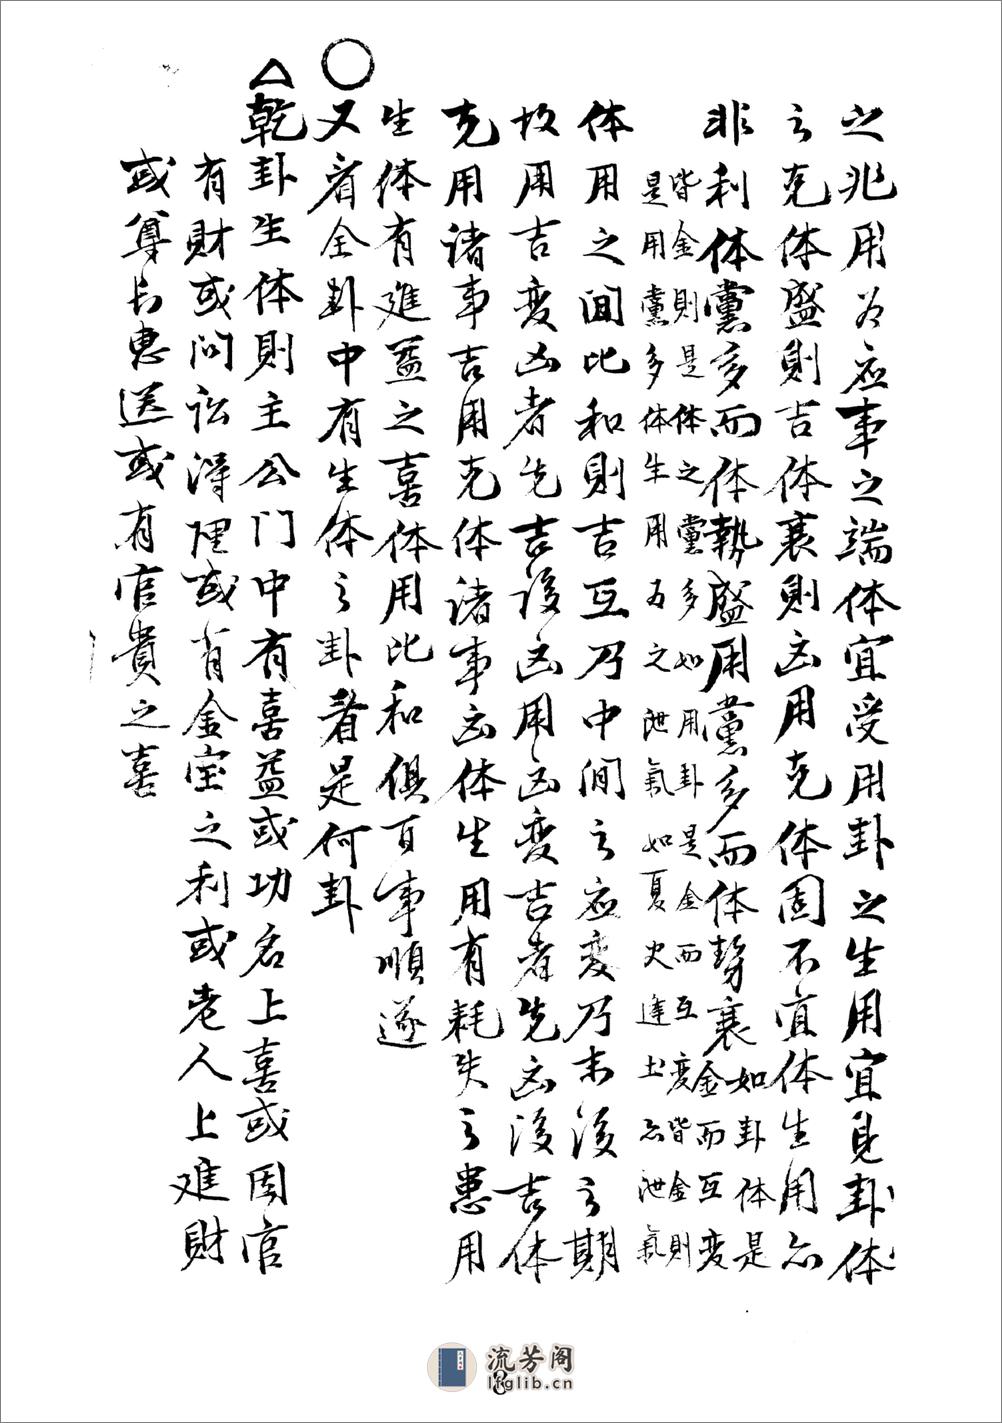 之兆用为应事之端体宜受用卦之生用宜見卦体
之克体盛則吉体衰則凶用克体固不宜体生用亦
非利体黨多而体勢盛用黨多而体势衰如卦体是金而互变
皆金則是体之黨多如用卦是金而互变皆金則
是用黨多体生用为之泄氣如夏火逢土亦泄氣
体用之间比和則吉互乃中间之应变乃末後之期
故用吉变凶者先吉後凶用凶变吉者先凶後吉体
克用诸事吉用克体诸事凶体生用有耗失之患用
生体有進益之喜体用比和俱百事順遂
○又看全卦中有生体之卦看是何卦
△乾卦生体則主公门中有喜益或功名上喜或因官
有財或问讼得理或有金宝之利或老人上進財
或尊长惠送或有官貴之喜
8
流芳阁
lfglib.cn